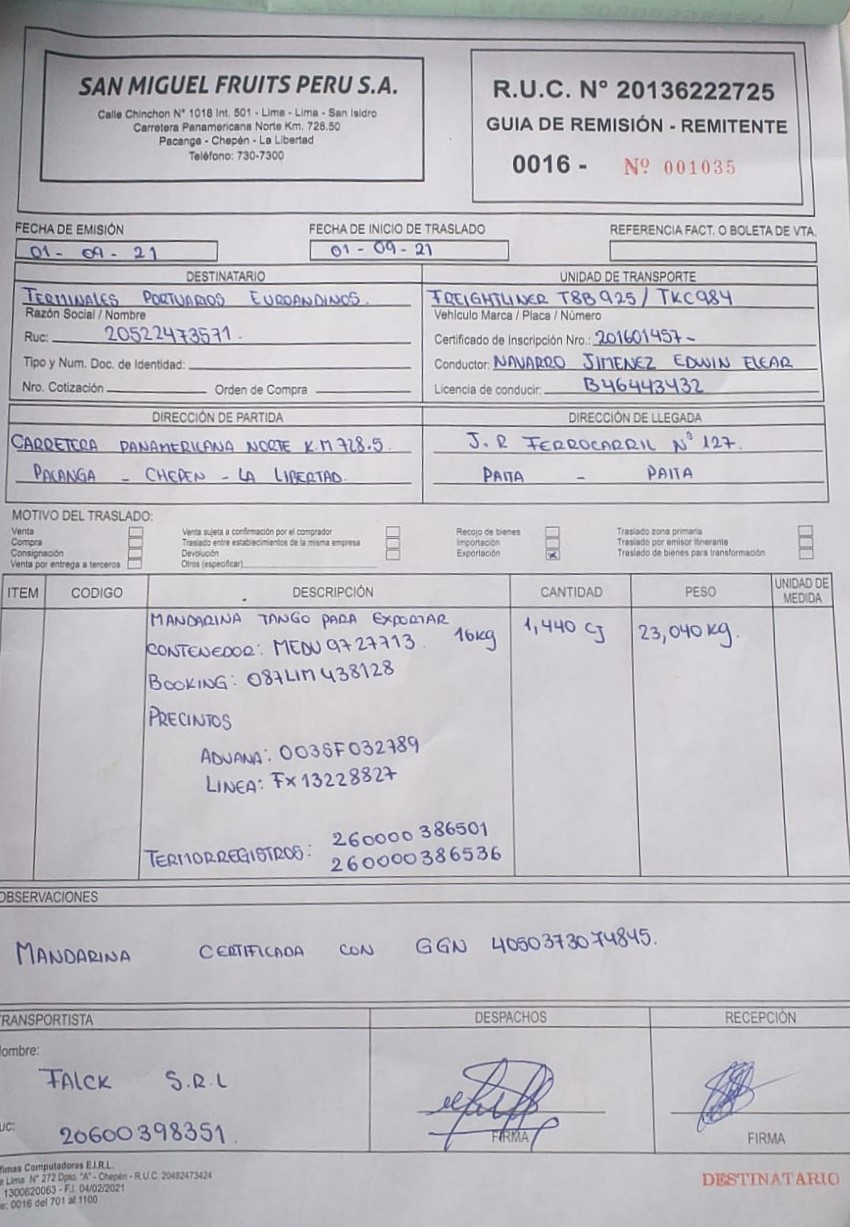 SAN MIGUEL FRUITS PERU S.A.
Calle Chinchon N° 1018 Int. 501 - Lima - Lima - San Isidro
Carretera Panamericana Norte Km. 728.50
Pacanga - Chepén - La Libertad
Teléfono: 730-7300
R.U.C. N° 20136222725
GUIA DE REMISIÓN - REMITENTE
0016 - Nº 001035
FECHA DE EMISIÓN
01 - 09 - 21
FECHA DE INICIO DE TRASLADO
01 - 09 - 21
REFERENCIA FACT. O BOLETA DE VTA.
DESTINATARIO
TERMINALES PORTUARIOS EUROANDINOS.
Razón Social / Nombre
Ruc: 20522473571.
Tipo y Num. Doc. de Identidad:
Nro. Cotización Orden de Compra
UNIDAD DE TRANSPORTE
FREIGHTLINER T8B925 / TKC984
Vehículo Marca / Placa / Número
Certificado de Inscripción Nro.: 201601457-
Conductor: NAVARRO JIMENEZ EDWIN ELEAR
Licencia de conducir: B46443432
DIRECCIÓN DE PARTIDA
CARRETERA PANAMERICANA NORTE K.M 728.5
PACANGA - CHEPEN - LA LIBERTAD.
DIRECCIÓN DE LLEGADA
J.R FERROCARRIL N° 127.
PAITA - PAITA
MOTIVO DEL TRASLADO:
Venta
Compra
Consignación
Venta por entrega a terceros
Venta sujeta a confirmación por el comprador
Traslado entre establecimientos de la misma empresa
Devolución
Otros (especificar)
Recojo de bienes
Importación
Exportación x
Traslado zona primaria
Traslado por emisor itinerante
Traslado de bienes para transformación
ITEM CODIGO DESCRIPCIÓN CANTIDAD PESO UNIDAD DE MEDIDA
MANDARINA TANGO PARA EXPORTAR
CONTENEDOR: MEDU 9727713. 16kg 1,440 CJ 23,040 kg.
BOOKING: 087LIM438128
PRECINTOS
ADUANA: 003SF032789
LINEA: FX13228827
TERMORREGISTROS: 260000386501
260000386536
OBSERVACIONES
MANDARINA CERTIFICADA CON GGN 4050373074845.
TRANSPORTISTA
ombre:
FALCK S.R.L
uc:
20600398351.
DESPACHOS
FIRMA
RECEPCIÓN
FIRMA
fimas Computadoras E.I.R.L.
e Lima N° 272 Dpto. "A" - Chepén - R.U.C. 20482473424
1300620063 - F.I. 04/02/2021
o: 0016 del 701 al 1100
DESTINATARIO